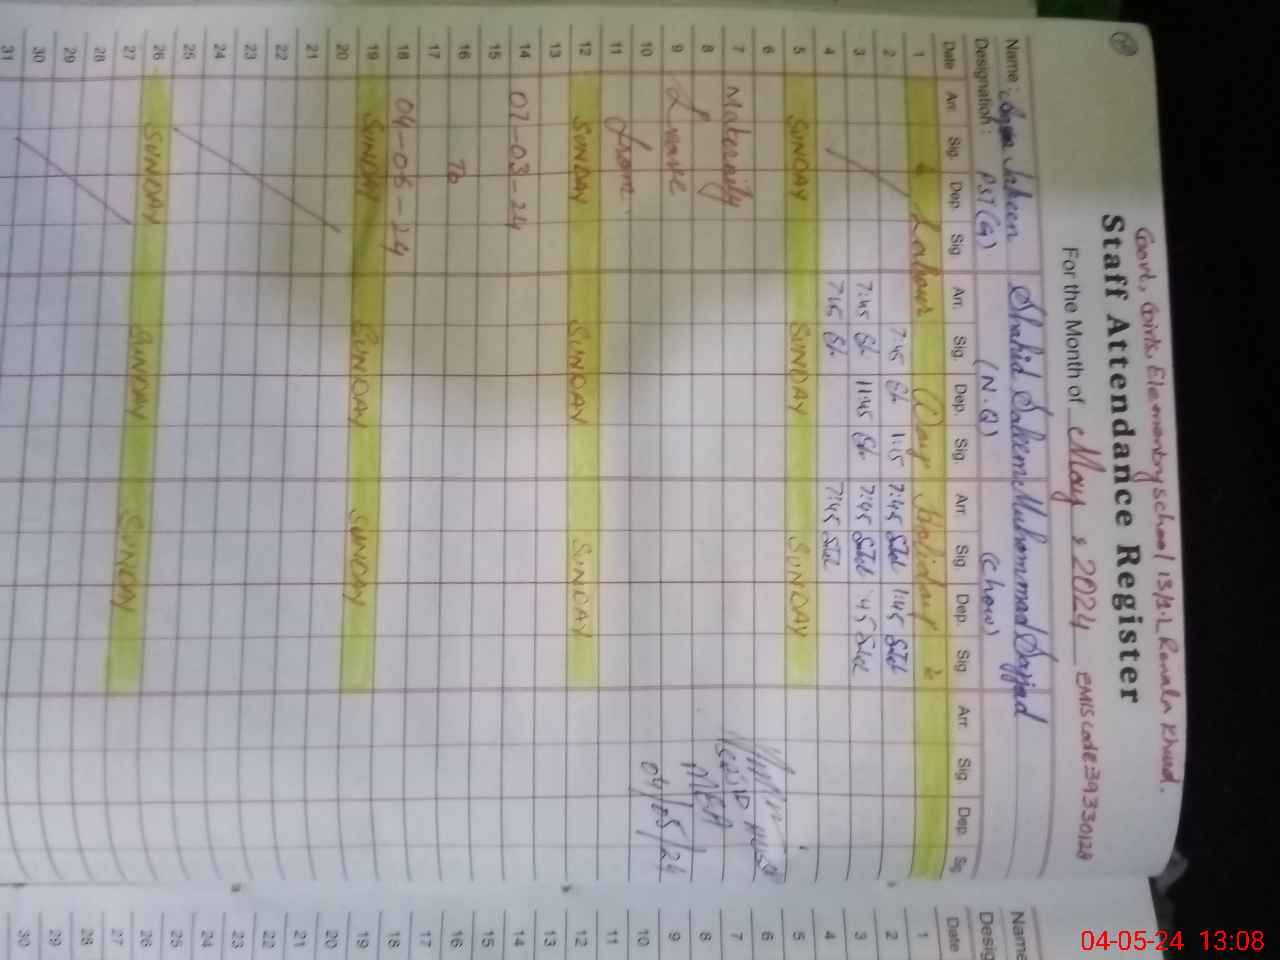 Govt, Girls, Elementry school 13/1.L Renala Khurd.
Staff Attendance Register
For the Month of May, 2024 EMIS Code 39330128
Name: Shahid Saleem Muhammad Sajjad
Designation: PST(G) (N.Q) (Chow)
Date Arr. Sig. Dep. Sig Arr. Sig. Dep. Sig. Arr. Sig Dep. Sig Arr. Sig. Dep. Sig
1 Labour Day Holiday
2 7:45 1:15 7:45 1:45
3 7:45 11:45 7:45 :45
4 7:45 7:45
5 SUNDAY SUNDAY SUNDAY
6
7 Maternity
8
9 Leave
10 04/05/24
11 from
12 SUNDAY SUNDAY SUNDAY
13
14 07-03-24
15
16 To
17
18 04-06-24
19 SUNDAY SUNDAY SUNDAY
20
21
22
23
24
25
26 SUNDAY SUNDAY SUNDAY
27
28
29
30
31
MEA
Name
Desig
Date
1
2
3
4
5
6
7
8
9
10
11
12
13
14
15
16
17
18
19
20
21
22
23
24
25
26
27
28
29
30
04-05-24 13:08